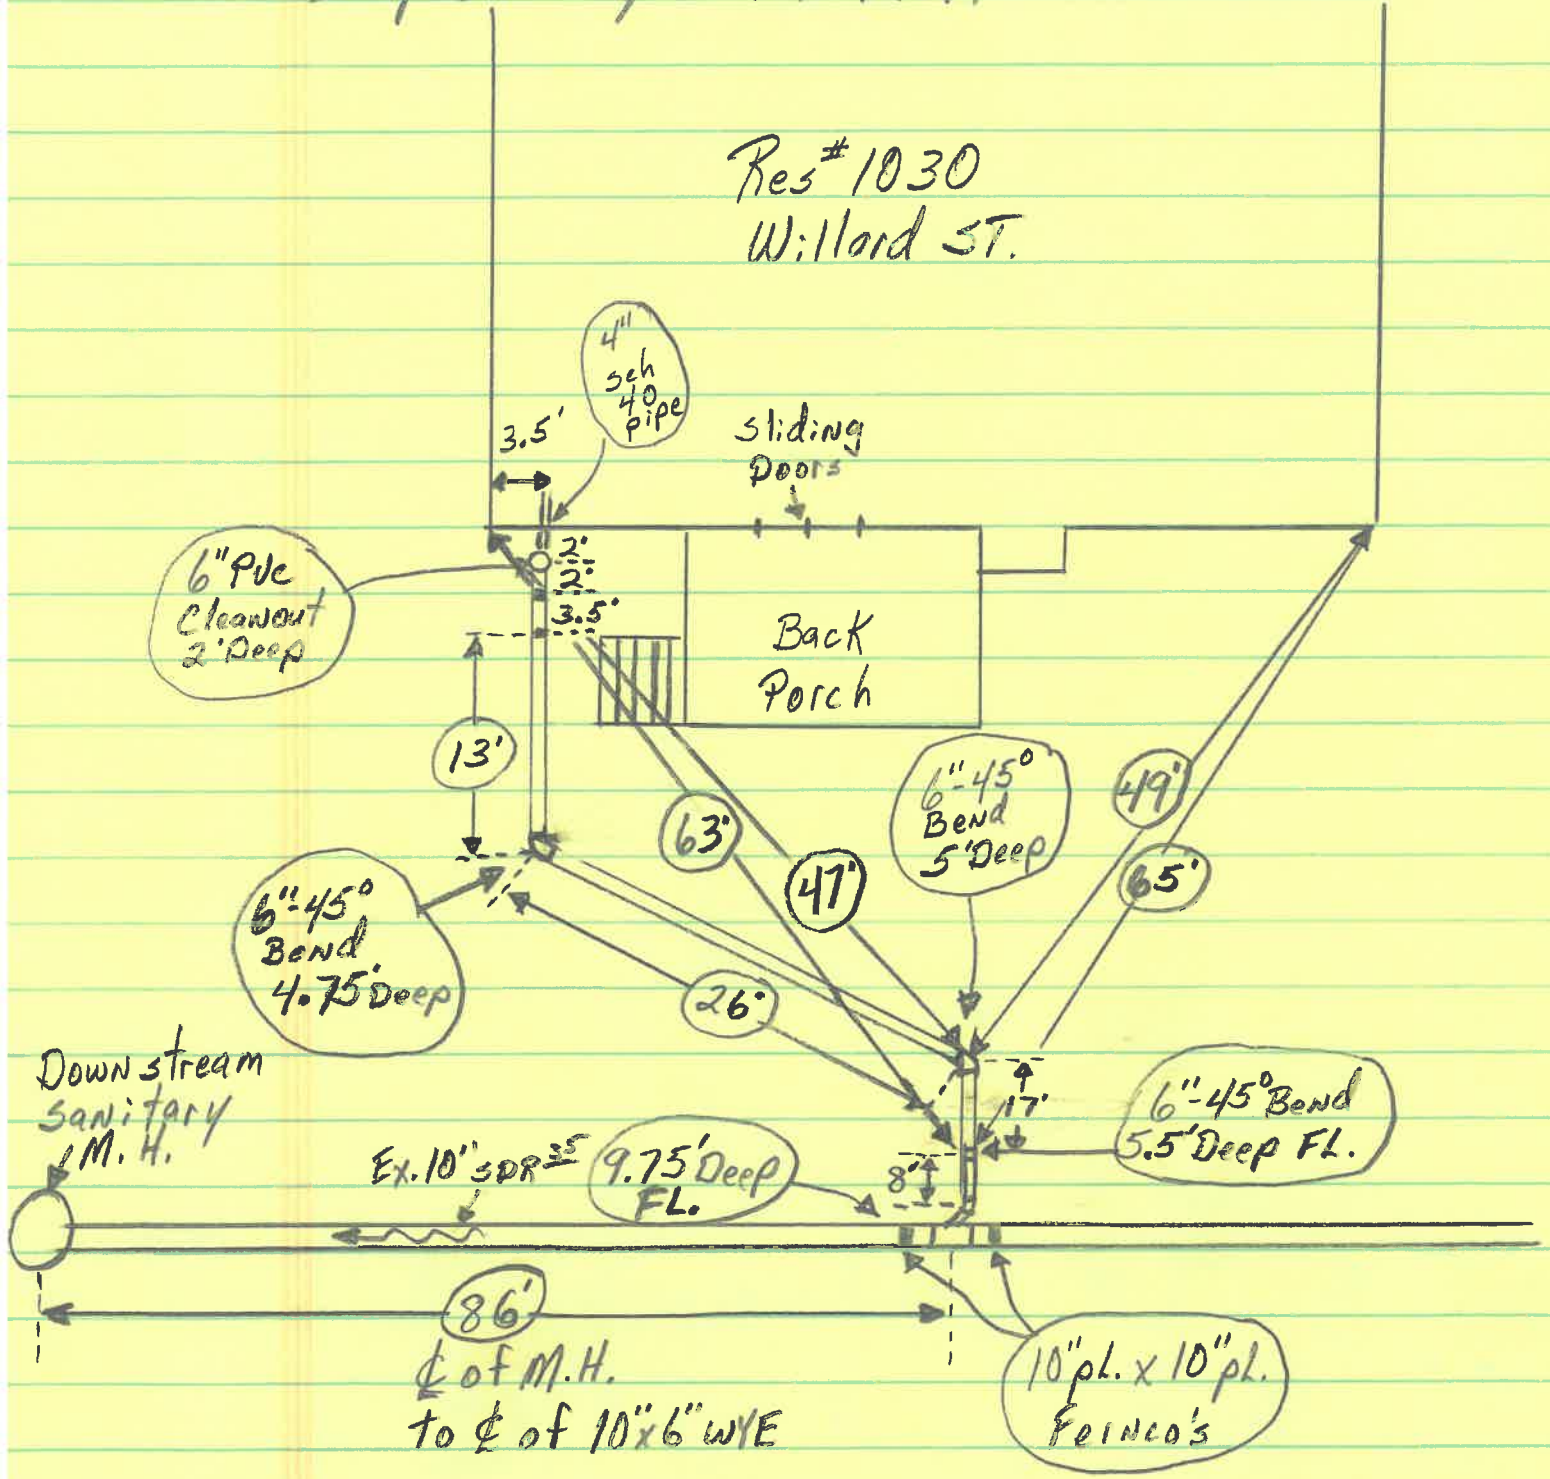 Res # 1030
Willard ST.
4"
sch
40
pipe
3.5'
sliding
Doors
2'
2'
3.5'
6" PVC
Cleanout
2' Deep
Back
Porch
13'
63'
47'
6"-45°
Bend
5' Deep
49'
65'
6"-45°
Bend
4.75' Deep
26'
Downstream
Sanitary
M.H.
Ex. 10" SDR 35
9.75' Deep
FL.
8'
17'
6"-45° Bend
5.5' Deep FL.
86'
℄ of M.H.
to ℄ of 10"x6" WYE
10" pL. x 10" pL.
Fernco's